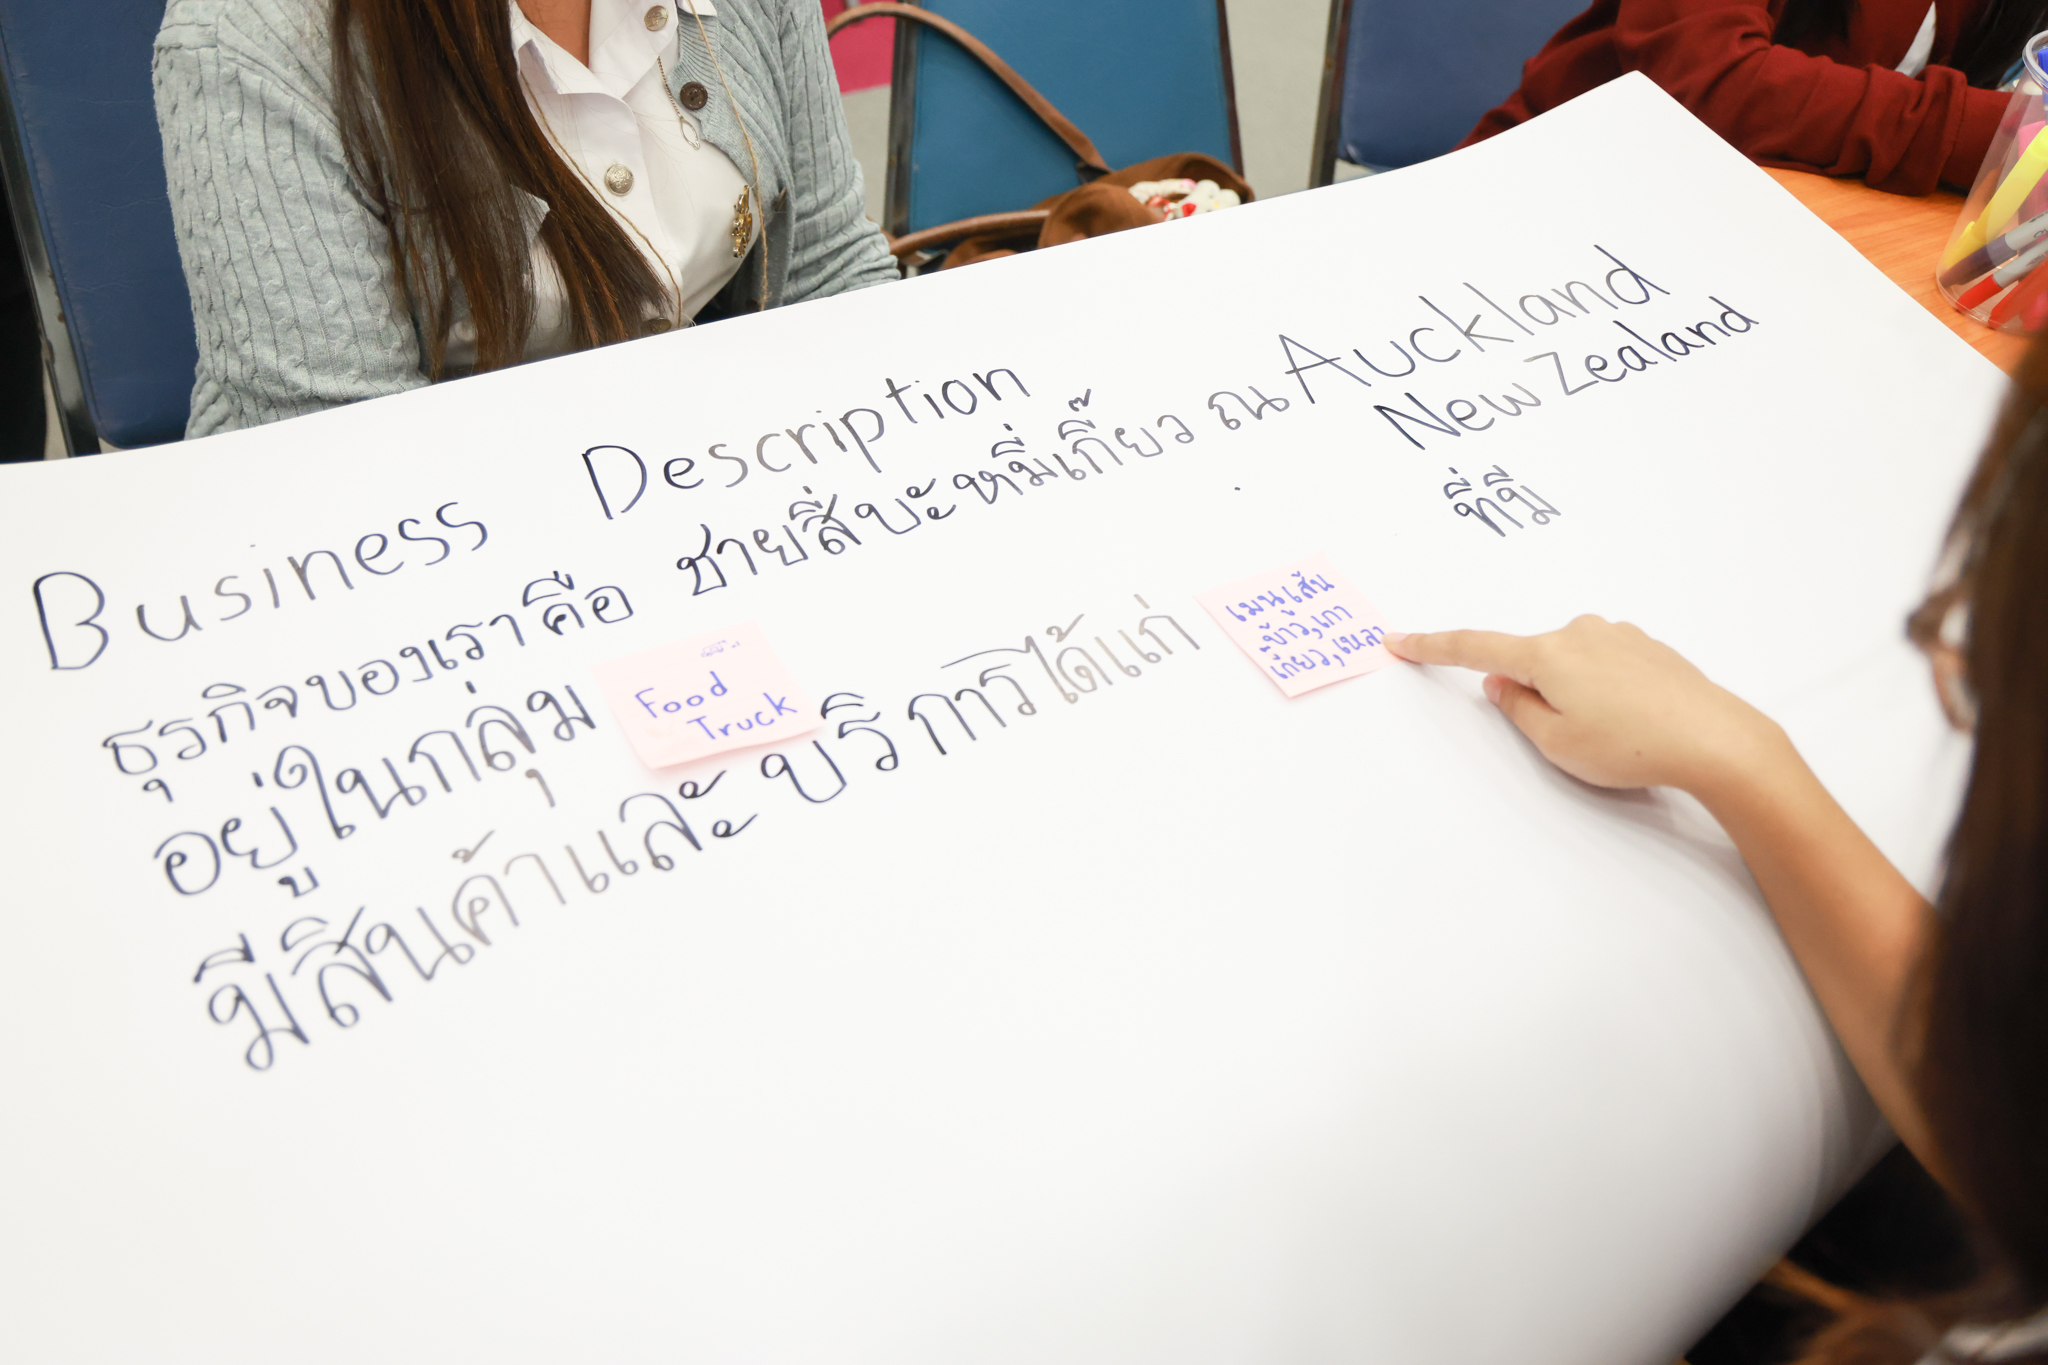 Business Description
ธุรกิจของเราคือ ชายสี่บะหมี่เกี๊ยว ณ Auckland
New Zealand
อยู่ในกลุ่ม Food
Truck
ที่มี
มีสินค้าและบริการได้แก่
เมนูเส้น
ข้าว, เกา
เกี๊ยว, เหลา